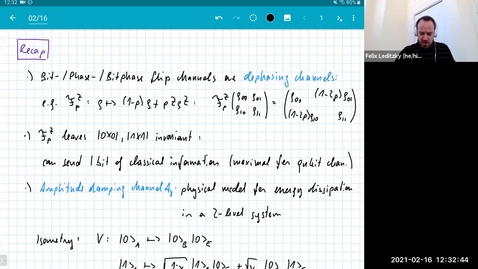 12:32
84%
02/16
Recap
·) Bit-/Phase-/Bitphase flip channels are dephasing channels:
e.g. F_p^Z : ρ ↦ (1-p) ρ + p Z ρ Z : F_p^Z (ρ00 ρ01 ρ10 ρ11) = (ρ00 (1-2p)ρ01 (1-2p)ρ10 ρ11)
·) F_p^Z leaves |0X0|, |1X1| invariant :
can send 1 bit of classical information (maximal for qubit chan.)
·) Amplitude damping channel A_γ: physical model for energy dissipation
in a 2-level system
Isometry: V: |0⟩_A ↦ |0⟩_B |0⟩_E
Felix Leditzky (he/hi...
2021-02-16 12:32:44